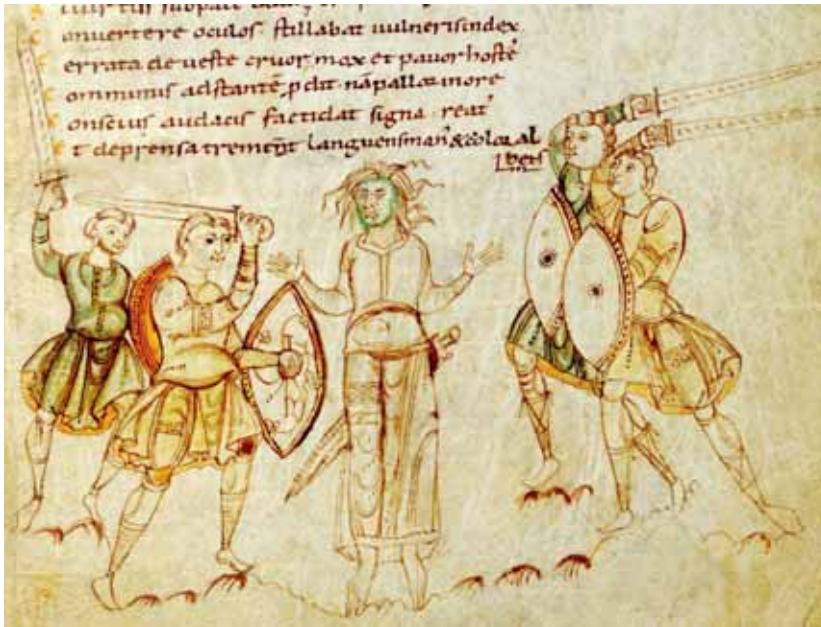 C onuertere oculos. stillabat uulnerisindex
F errata de ueste cruor. mox et pauor hostē
C omminus adstantē p̱dit. nā pallor inore
C onscius audacis facti dat signa reat'
E t deprensa tremit languens man' & color al
bens